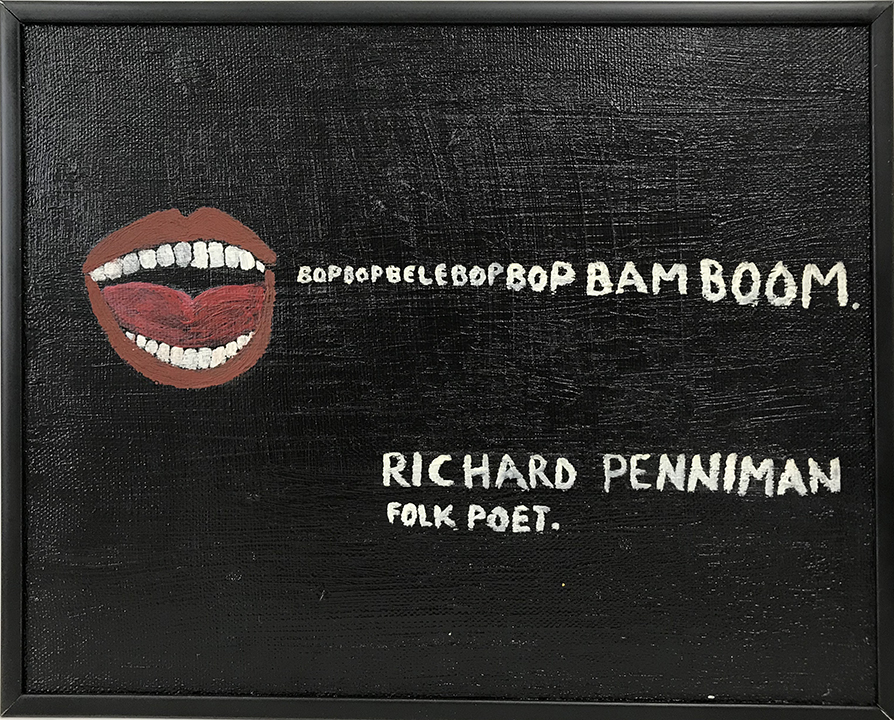 BOPBOPBELEBOPBOP BAM BOOM.
RICHARD PENNIMAN
FOLK POET.